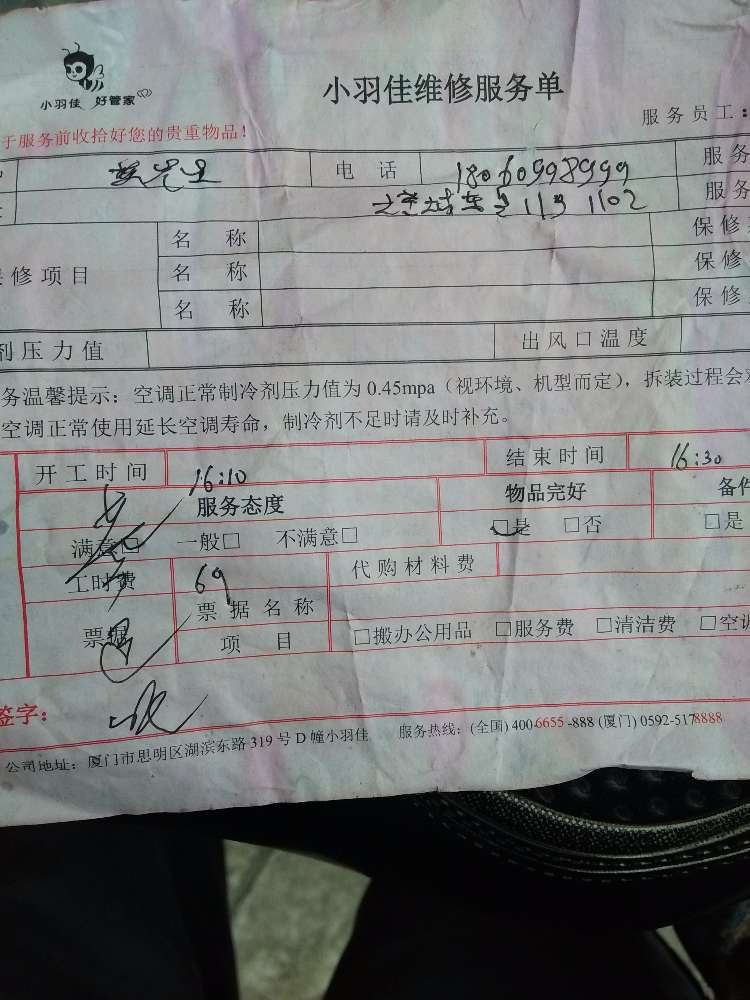 小羽佳 好管家
小羽佳维修服务单
于服务前收拾好您的贵重物品！
服务员工：
先生 电话 18060998999 服务
113 1102 服务
名称 保修
修项目 名称 保修
名称 保修
剂压力值 出风口温度
务温馨提示：空调正常制冷剂压力值为0.45mpa（视环境、机型而定），拆装过程会
空调正常使用延长空调寿命，制冷剂不足时请及时补充。
开工时间 16:10 结束时间 16:30
服务态度 物品完好 备件
满意□ 一般□ 不满意□ □是 □否 □是
工时费 69 代购材料费
票据 票据名称
项目 □搬办公用品 □服务费 □清洁费 □空调
签字：
公司地址：厦门市思明区湖滨东路319号D幢小羽佳 服务热线：(全国) 400-6655-888 (厦门) 0592-5178888